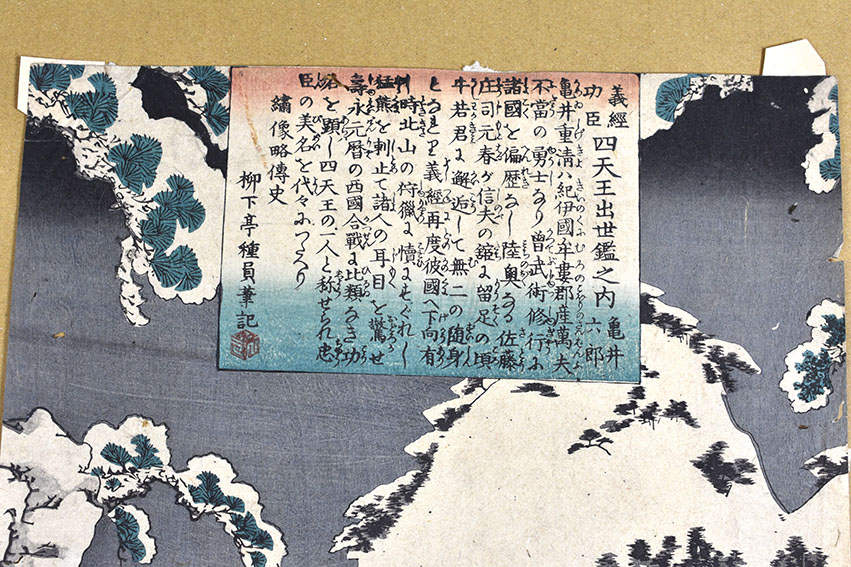 義經功臣 四天王出世鑑之内 亀井六郎
亀井重清ハ紀伊國牟婁郡産萬夫
不當の勇士なり曽武術修行に
諸國を偏歴なし陸奥なる佐藤
庄司元春が信夫の舘に留足の頃
牛若君に邂逅して無二の随身
となれり義經再度彼國へ下向有
し時北山の狩獵に
猛熊を刺止て諸人の耳目を驚せ
壽永元暦の西國合戰に比類なき功
を顕し四天王の一人と称せられ忠
臣の美名を代々に
繍像略傳史
柳下亭種員筆記